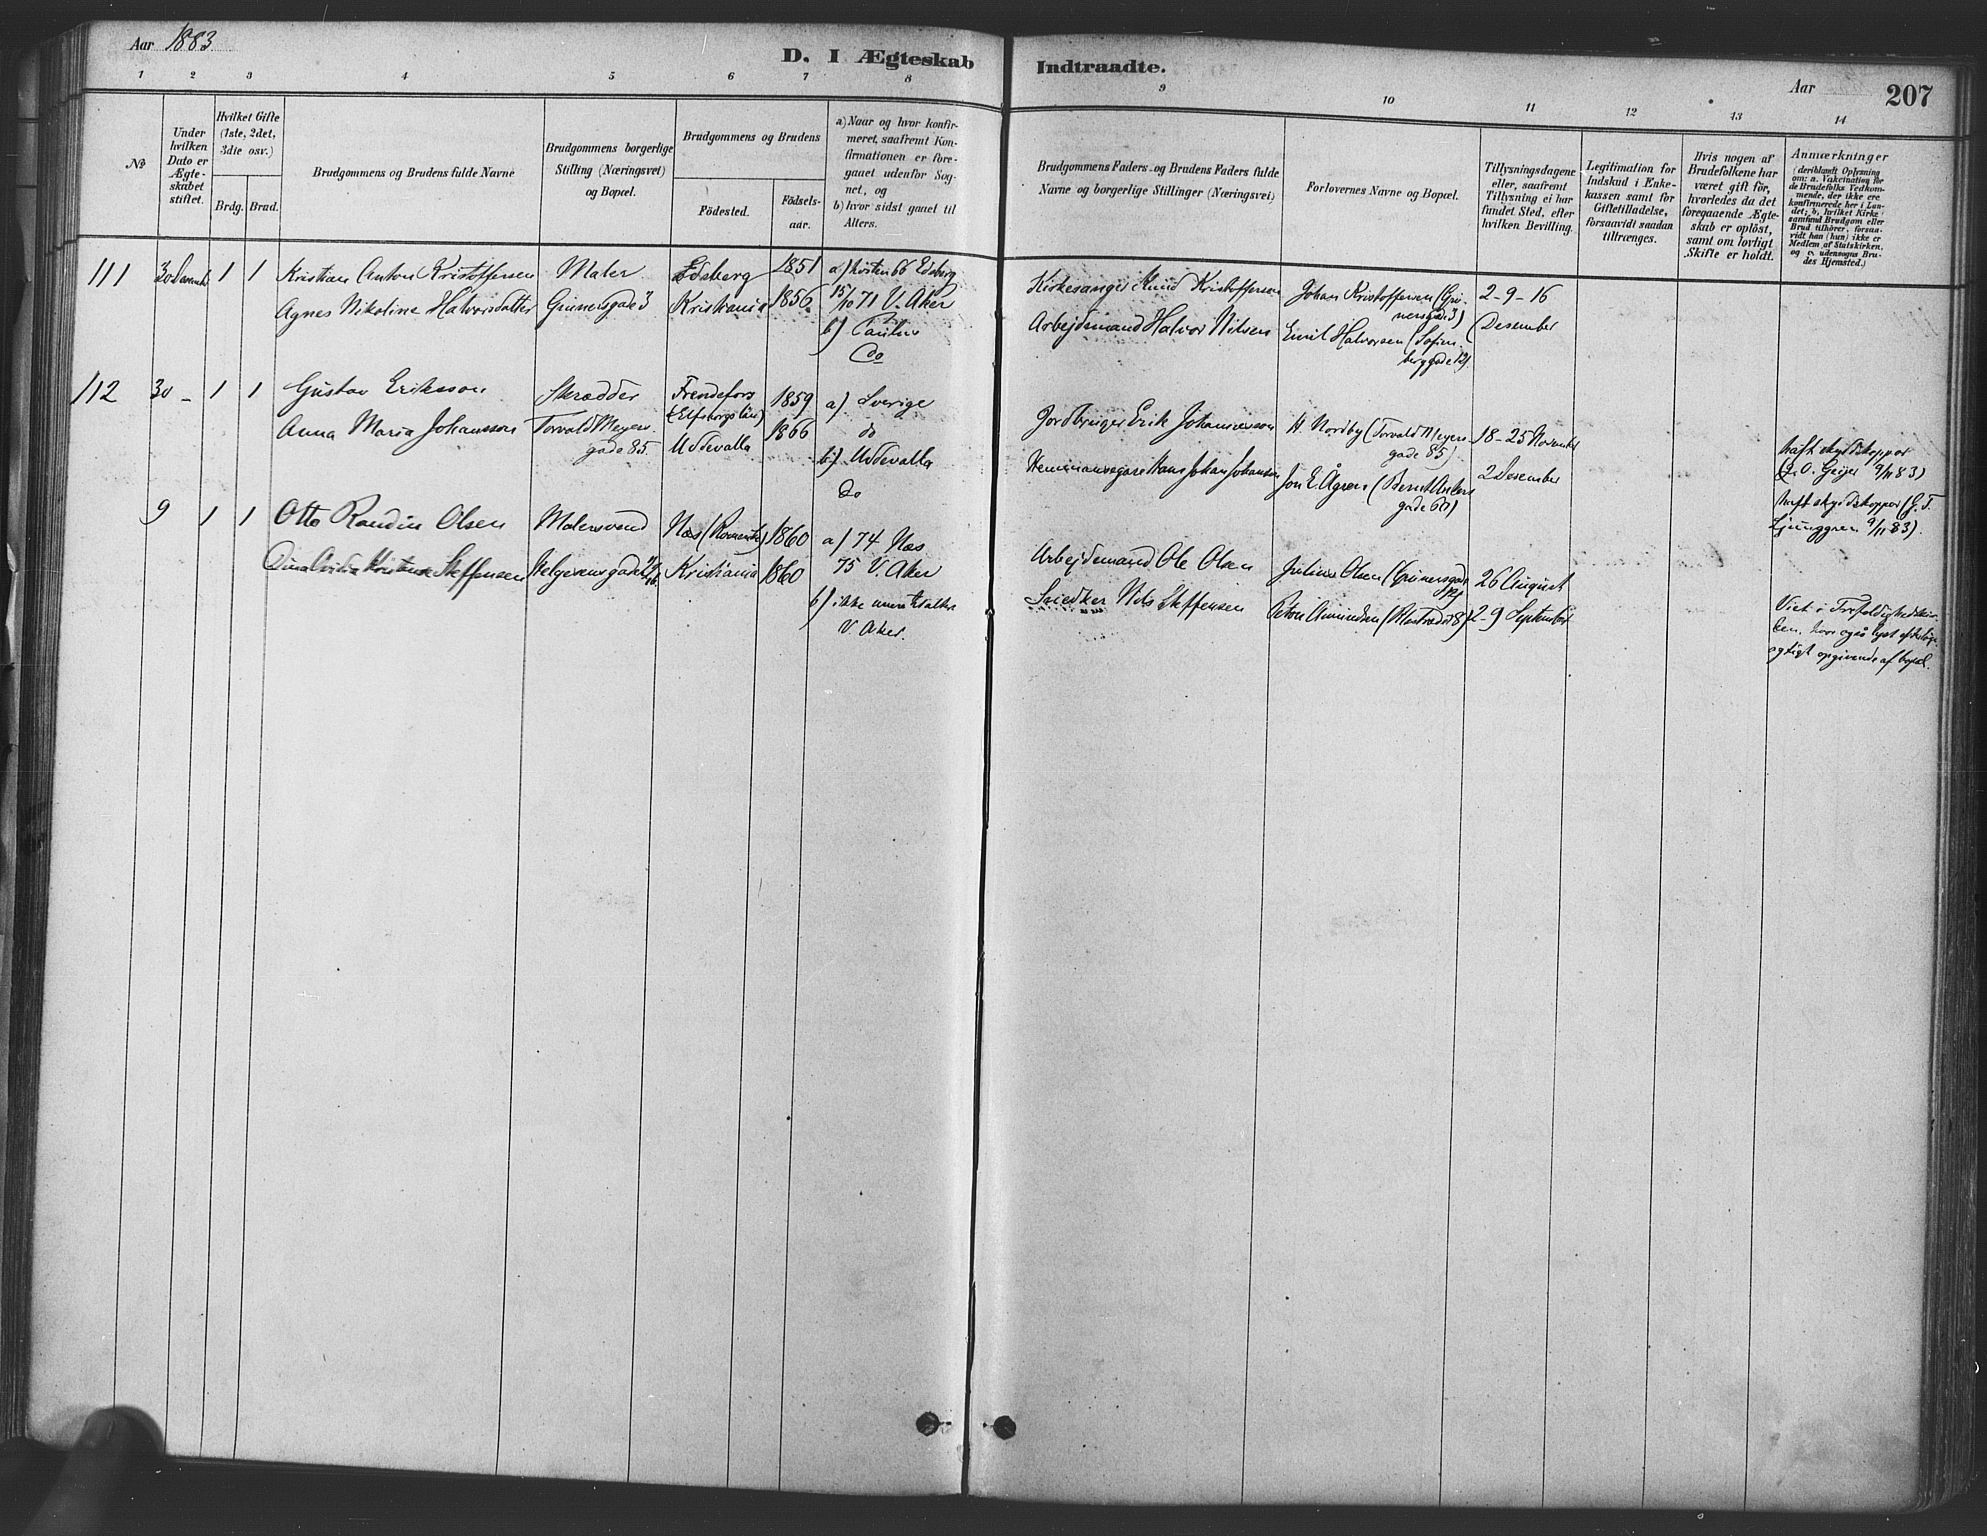 Aar 1883
D. I Ægteskab
Indtraadte.
Aar
207
1 2 3 4 5 6 7 8
9 10 11 12 13 14
No
Under
hvilken
Dato er
Ægte-
skabet
stiftet.
Hvilket Gifte
(1ste, 2det,
3die osv.)
Brdg. Brud.
Brudgommens og Brudens fulde Navne
Brudgommens borgerlige
Stilling (Næringsvei)
og Bopæl.
Brudgommens og Brudens
Fødested.
Fødsels-
aar.
a) Naar og hvor konfir-
meret, saafremt Kon-
firmationen er fore-
gaaet udenfor Sog-
net, og
b) hvor sidst gaaet til
Alters.
Brudgommens Faders- og Brudens Faders fulde
Navne og borgerlige Stillinger (Næringsvei)
Forlovernes Navne og Bopæl.
Tillysningsdagene
eller, saafremt
Tillysning ei har
fundet Sted, efter
hvilken Bevilling.
Legitimation for
Indskud i Enke-
kassen samt for
Giftetilladelse,
forsaavidt saadan
tiltrænges.
Hvis nogen af
Brudefolkene har
været gift før,
hvorledes da det
foregaaende Ægte-
skab er opløst,
samt om lovligt
Skifte er holdt.
Anmærkninger
(deriblandt Oplysning
om: a. Vakcination for
de Brudefolks Vedkom-
mende, der ikke ere
konfirmerede her i Lan-
det; b. hvilket Kirke-
samfund Brudgom eller
Brud tilhører, forsaa-
vidt han (hun) ikke er
Medlem af Statskirken,
og c. udensogns Bru-
des Hjemsted.)
111
1 1
Kristian Anton Kristoffersen
Agnes Nikoline Halvorsdatter
Maler
Grünersgade 3
Edsberg
Kristiania
1851
1856
a) høsten 66 Edsberg
15/10 71 V. Aker
b) Paulus
do
Kirkesanger Kristoffersen
Arbejdsmand Halvor Nilsen
Johan Kristoffersen (Grü-
nersgade 3)
Emil Halvorsen (Sofien-
berggade 12)
2-9-16
Desember
112 30 - 1 1
Gustav Eriksson
Anna Maria Johansson
Skrædder
Torvald Meyers
gade 85
Frendefors
(Elfsborgs län)
Uddevalla
1859
1866
a) Sverige
do
b) Uddevalla
Do
Jordbruger Erik Johannesson
Hemmansegare Hans Johan Johansson
H. Nordby (Torvald Meyers-
gade 85)
Jon E. Ågren (Bernt Ankers
gade 60)
18-25 November
2 Desember
haft skyddskoppor
(J. O. Geijer 9/11 83)
haft skyddskoppor (G. T.
Ljunggren 9/11 83).
9 1 1
Otto Randin Olsen
Dina Kristine Steffensen
Malersvend
Helgesensgade
Næs (Romerike)
Kristiania
1860
1860
a) 74 Næs
75 V. Aker
b) ikke været til alters
V. Aker.
Arbejdsmand Ole Olsen
Snedker Nils Steffensen
Julius Olsen (Grünersgade
Petra Amundsen (8)
26 August
2-9 September
Viet i Trefoldighedskir-
ken, hvor også lyst efter
agtigt opgivende af bopæl.